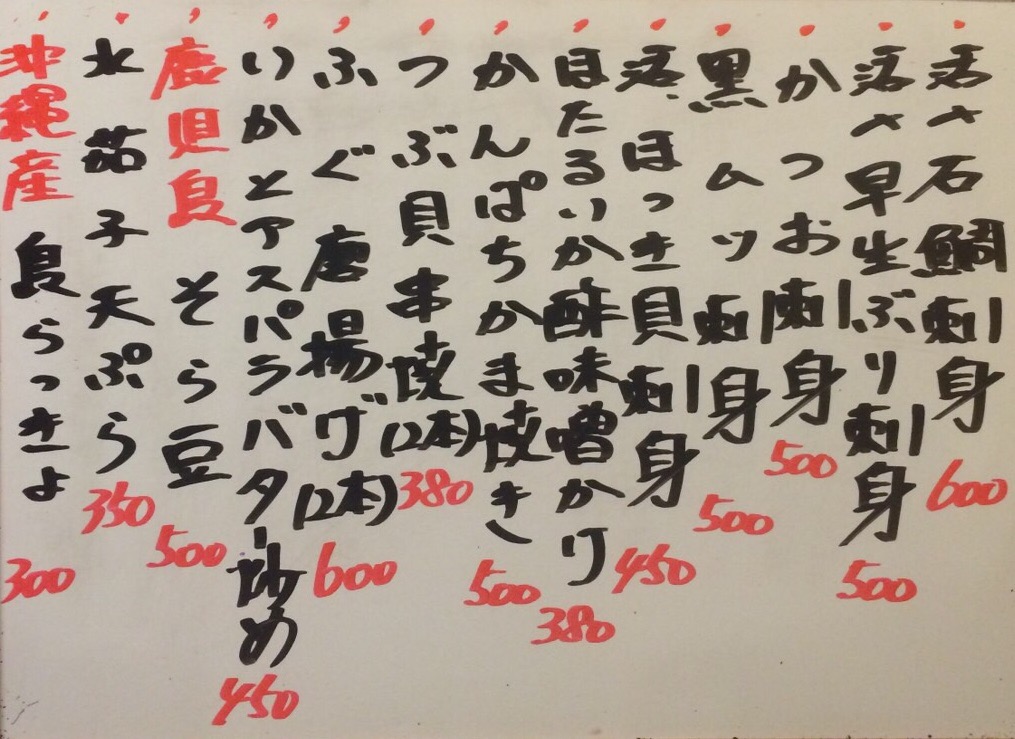 活〆石鯛刺身 600
活〆早生ぶり刺身 500
かつお刺身 500
黒ムツ刺身 500
活ほっき貝刺身 450
ほたるいか酢味噌かけ 380
かんぱちかま焼き 500
つぶ貝串焼(2本) 380
ふぐ唐揚げ(2本) 600
いかとアスパラバター炒め 450
鹿児島そら豆 500
水茄子天ぷら 350
沖縄産島らっきょ 300